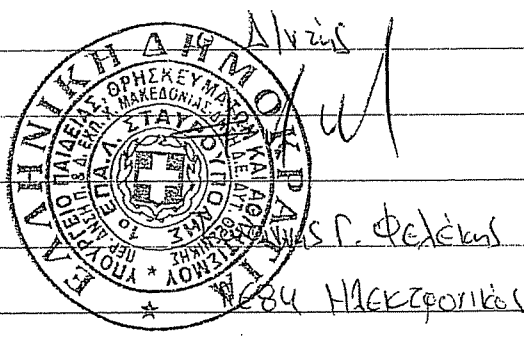 Δ/ντής
ΕΛΛΗΝΙΚΗ ΔΗΜΟΚΡΑΤΙΑ
ΥΠΟΥΡΓΕΙΟ ΠΑΙΔΕΙΑΣ, ΘΡΗΣΚΕΥΜΑΤΩΝ ΚΑΙ ΑΘΛΗΤΙΣΜΟΥ
ΠΕΡ. Δ/ΝΣΗ Π. & Δ. ΕΚΠ. Κ. ΜΑΚΕΔΟΝΙΑΣ
1ο ΕΠΑ.Λ. ΣΤΑΥΡΟΥΠΟΛΗΣ
Γ. Φελέκης
ΠΕ84 Ηλεκτρονικός